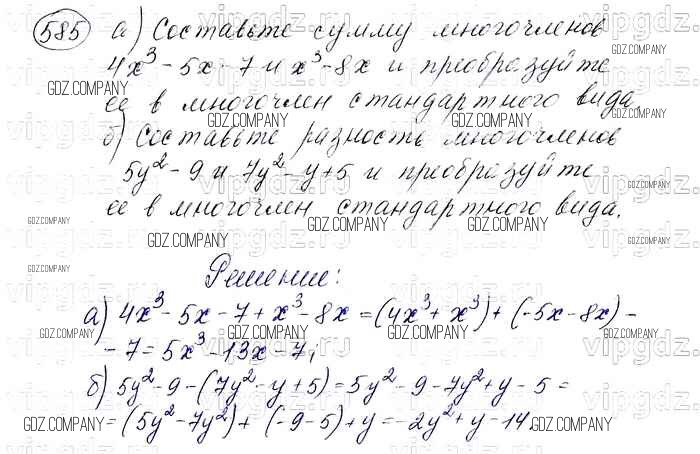 585 а) Составьте сумму многочленов
4x³ - 5x - 7 и x³ - 8x и преобразуйте
ее в многочлен стандартного вида
б) Составьте разность многочленов
5y² - 9 и 7y² - y + 5 и преобразуйте
ее в многочлен стандартного вида.
Решение:
а) 4x³ - 5x - 7 + x³ - 8x = (4x³ + x³) + (-5x - 8x) -
- 7 = 5x³ - 13x - 7;
б) 5y² - 9 - (7y² - y + 5) = 5y² - 9 - 7y² + y - 5 =
= (5y² - 7y²) + (-9 - 5) + y = -2y² + y - 14.